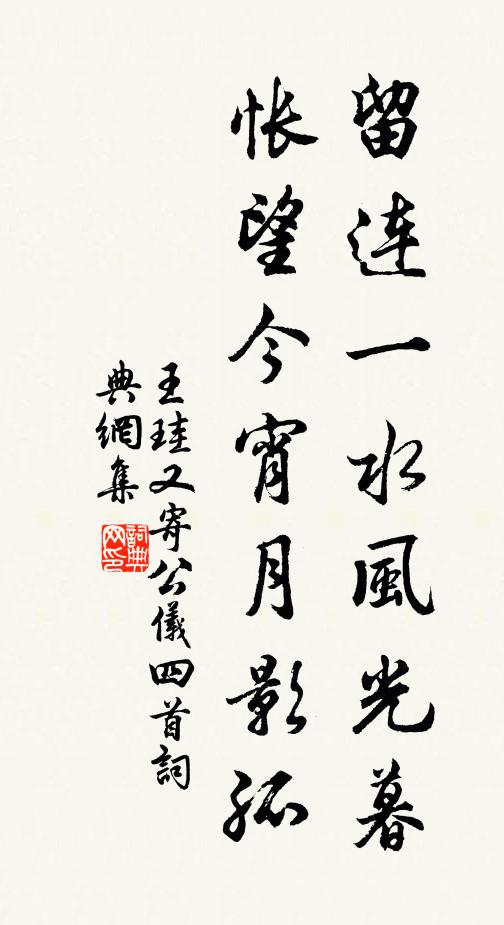 留連一水風光暮
悵望今宵月影孤
王珪又寄公儀四首詞
典網集
詞典
网印